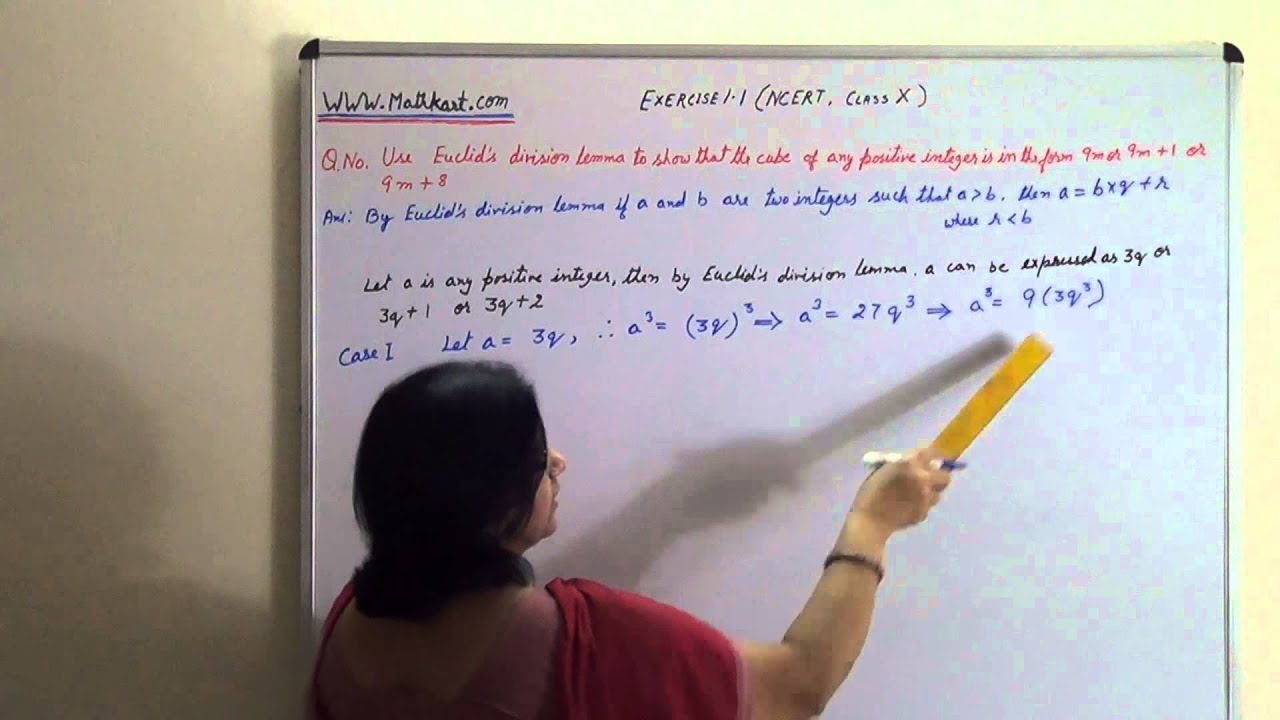 WWW.Mathkart.com
EXERCISE 1.1 (NCERT, CLASS X)
Q.No. Use Euclid's division lemma to show that the cube of any positive integer is in the form 9m or 9m+1 or
9m+8
Ans: By Euclid's division lemma if a and b are two integers such that a>b, then a=b×q+r
where r<b
Let a is any positive integer, then by Euclid's division lemma, a can be expressed as 3q or
3q+1 or 3q+2
Case I Let a= 3q, ∴ a³= (3q)³ ⇒ a³= 27q³ ⇒ a³= 9(3q³)